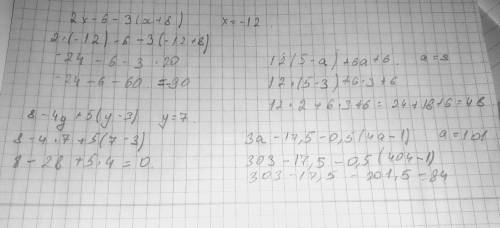 2x-6-3(x+8)    x=-12.
2·(-12)-6-3(-12+8)
-24-6-3·20
-24-6-60=-90
8-4y+5(y-3)  y=7.
8-4·7+5(7-3)
8-28+5·4=0.
12(5-a)+6a+6.  a=3
12·(5-3)+6·3+6
12·2+6·3+6=24+18+6=48
3a-17,5-0,5(4a-1)  a=101
303-17,5-0,5(404-1)
303-17,5-201,5=84